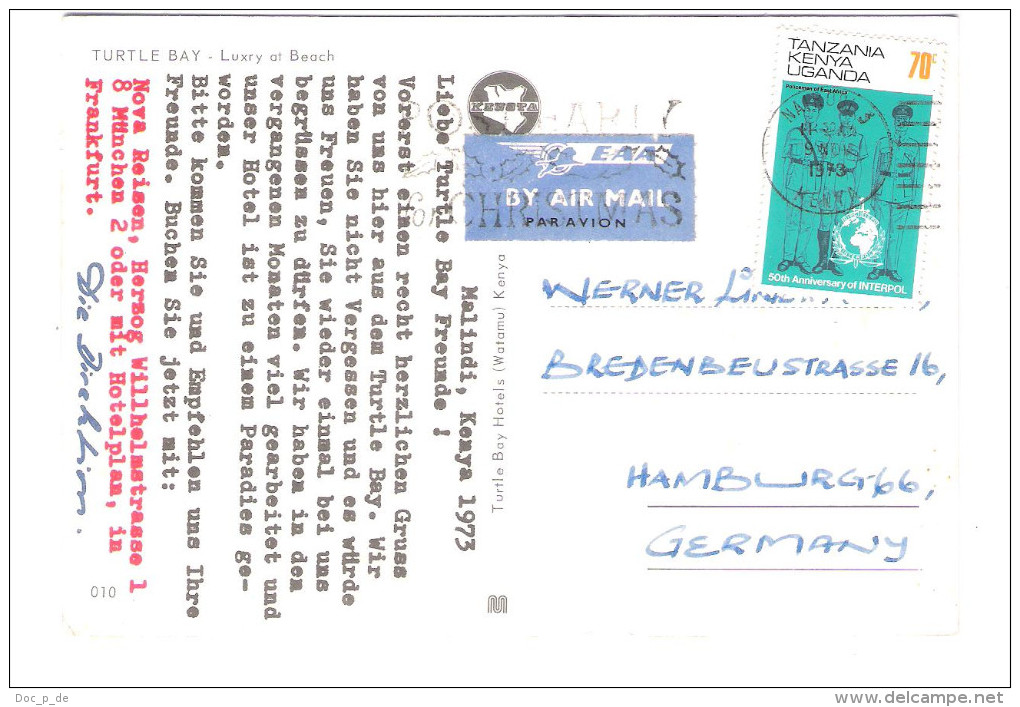 TURTLE BAY - Luxry at Beach
Malindi, Kenya 1973
Liebe Turtle Bay Freunde !
Vorerst einen recht herzlichen Gruss
von uns hier aus dem Turtle Bay. Wir
haben Sie nicht Vergessen und es würde
uns Freuen, Sie wieder einmal bei uns
begrüssen zu dürfen. Wir haben in den
vergangenen Monaten viel gearbeitet und
unser Hotel ist zu einem Paradies ge-
worden.
Bitte kommen Sie und Empfehlen uns Ihre
Freunde. Buchen Sie jetzt mit:
Nova Reisen, Herzog Willhelmstrasse 1
8 München 2 oder mit Hotelplan, in
Frankfurt.
Die Direktion.
010
Turtle Bay Hotels (Watamu) Kenya
KENSTA
POST EARLY
for CHRISTMAS
EAA
BY AIR MAIL
PAR AVION
TANZANIA
KENYA
UGANDA
70c
Policemen of East Africa
1973
KENYA
50th Anniversary of INTERPOL
WERNER
BREDENBEUSTRASSE 16,
HAMBURG-66,
GERMANY
Doc_p_de
www.delcampe.net